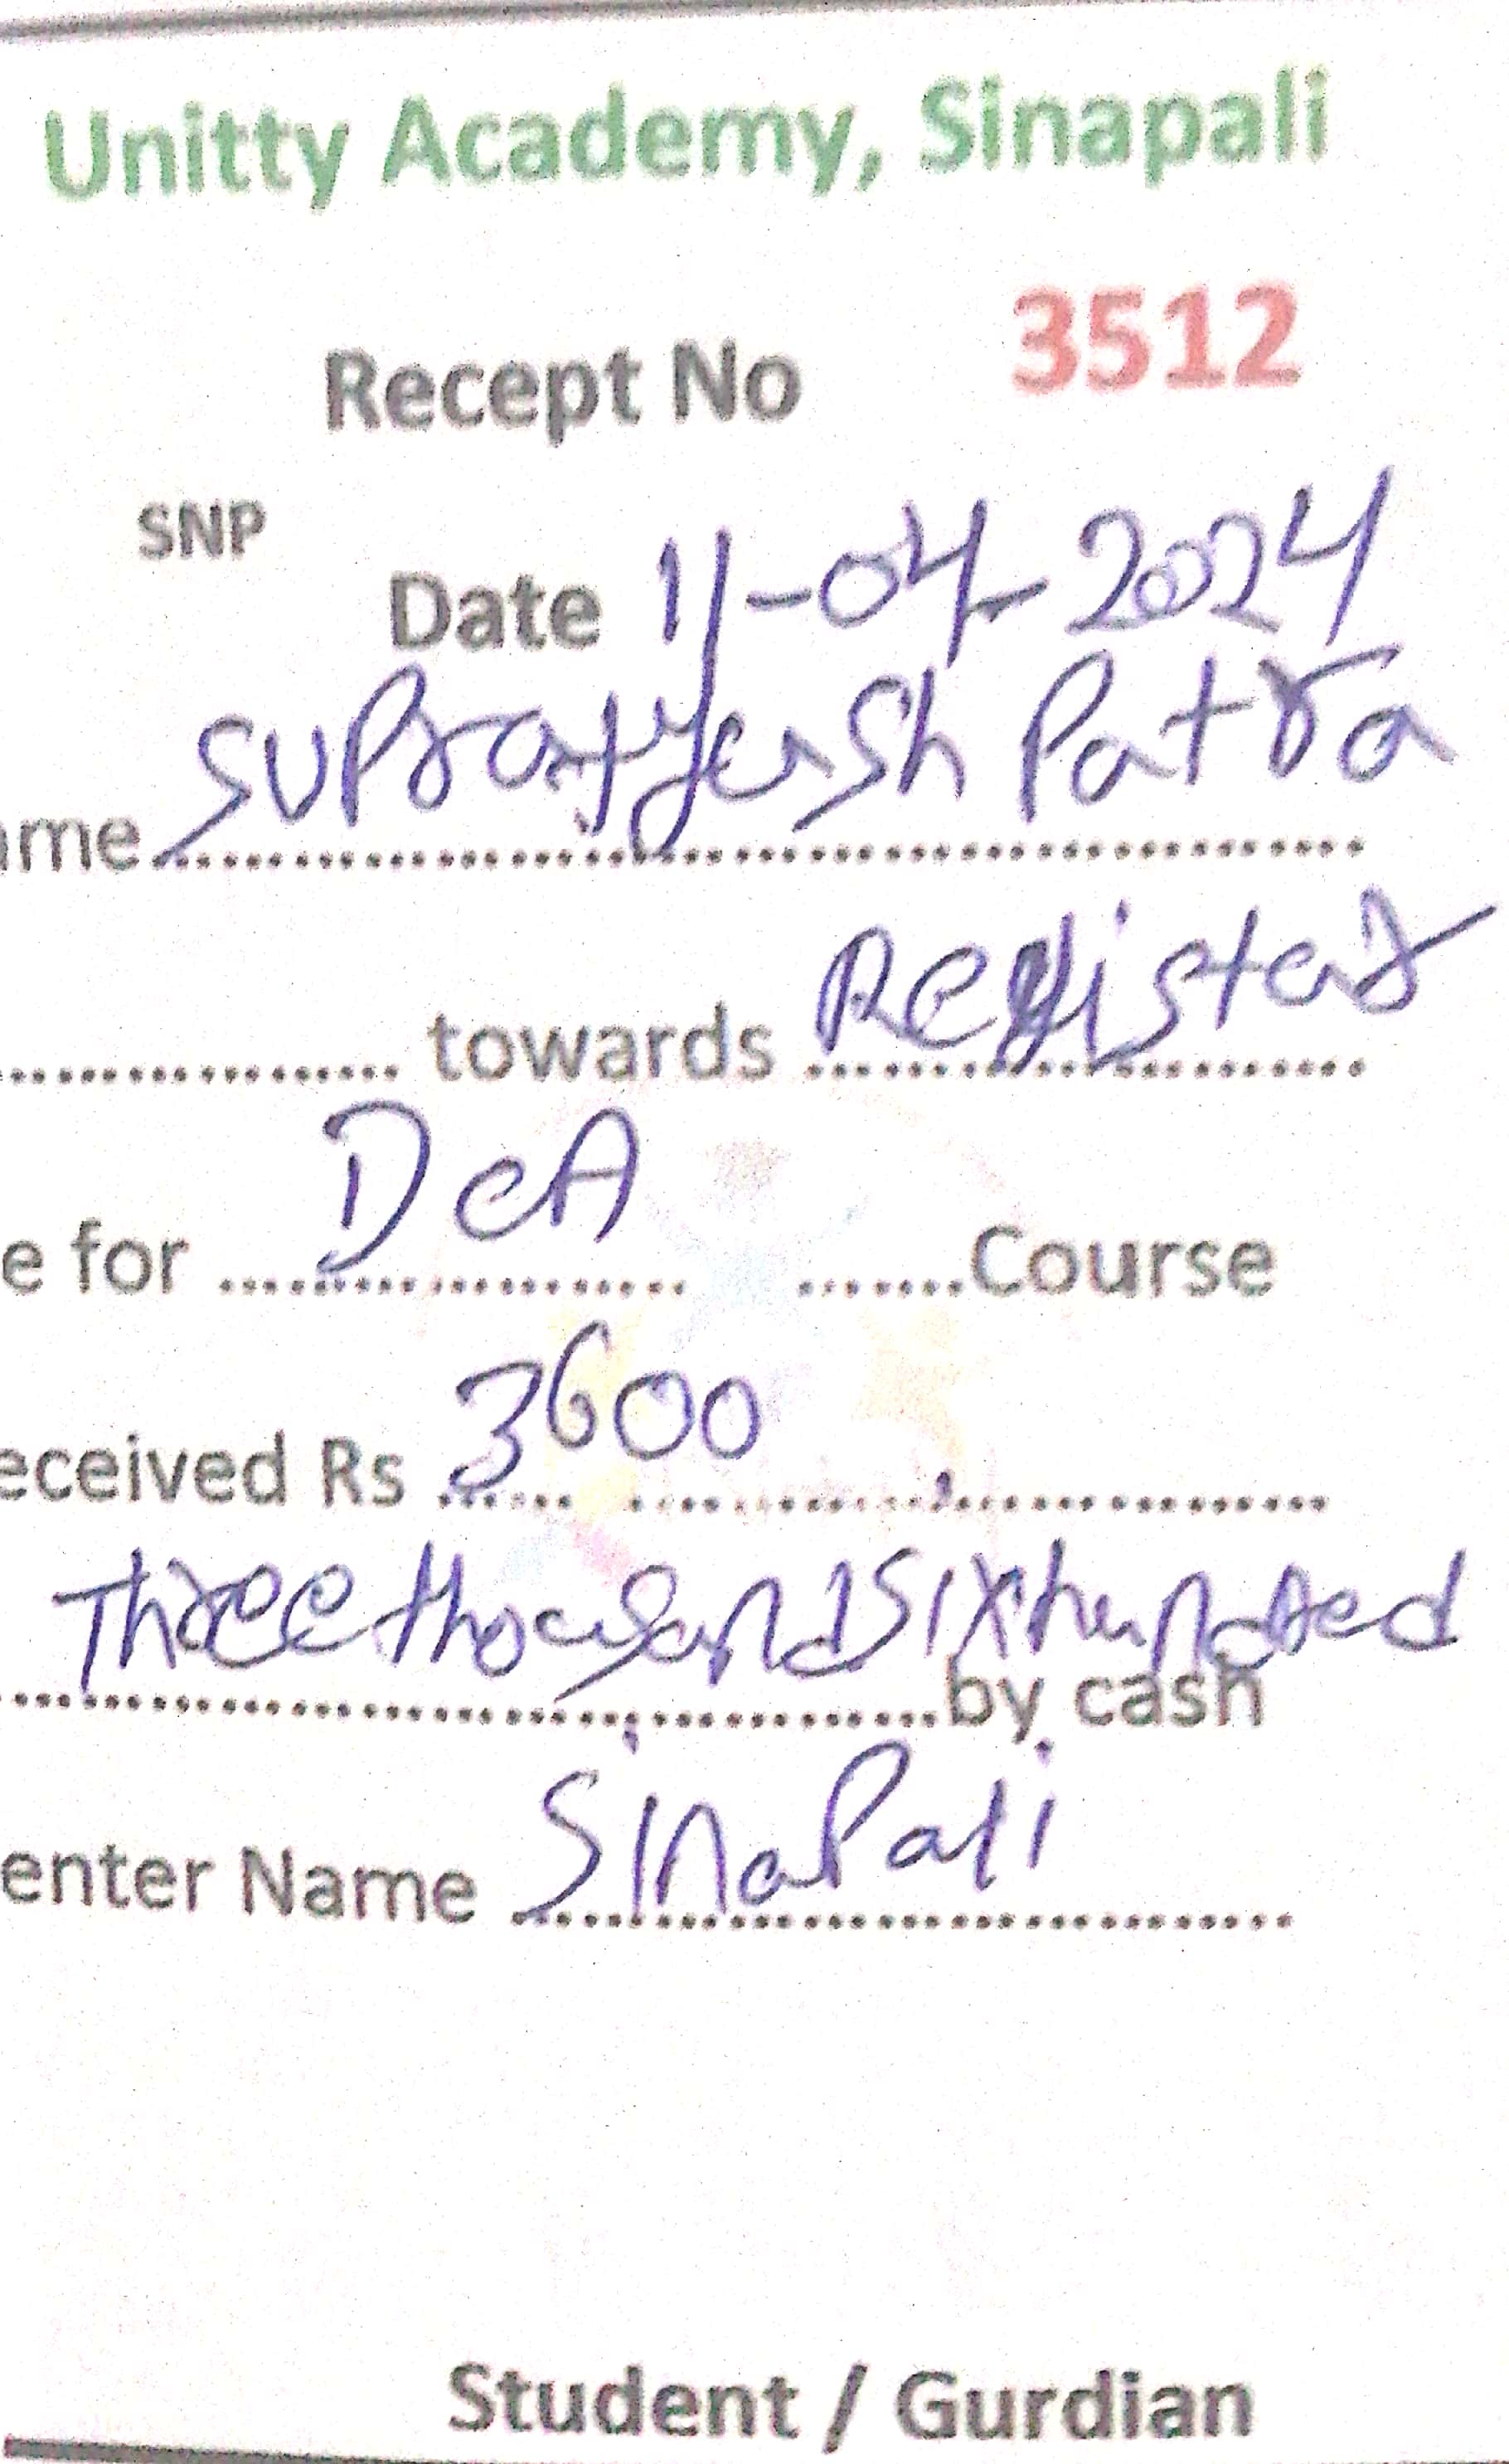 Unitty Academy, Sinapali
Recept No 3512
SNP
Date 11-04-2024
ame Supratyush Patra
towards Register
e for DCA Course
eceived Rs 3600
Three thousand Six hundred
by cash
enter Name Sinapali
Student / Gurdian